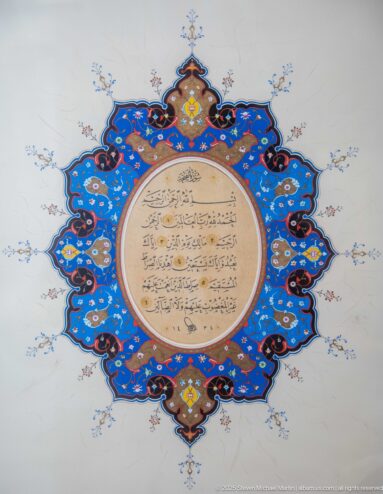 بِسْمِ اللهِ الرَّحْمٰنِ الرَّحِيمِ
اَلْحَمْدُ لِلّٰهِ رَبِّ الْعَالَمِينَ ١ اَلرَّحْمٰنِ
الرَّحِيمِ ٢ مَالِكِ يَوْمِ الدِّينِ ٣ اِيَّاكَ
نَعْبُدُ وَاِيَّاكَ نَسْتَعِينُ ٤ اِهْدِنَا الصِّرَاطَ
الْمُسْتَقِيمَ ٥ صِرَاطَ الَّذِينَ اَنْعَمْتَ عَلَيْهِمْ
غَيْرِ الْمَغْضُوبِ عَلَيْهِمْ وَلَا الضَّالِّينَ ٦
© 2025 Steven Michael Martin | all rights reserved